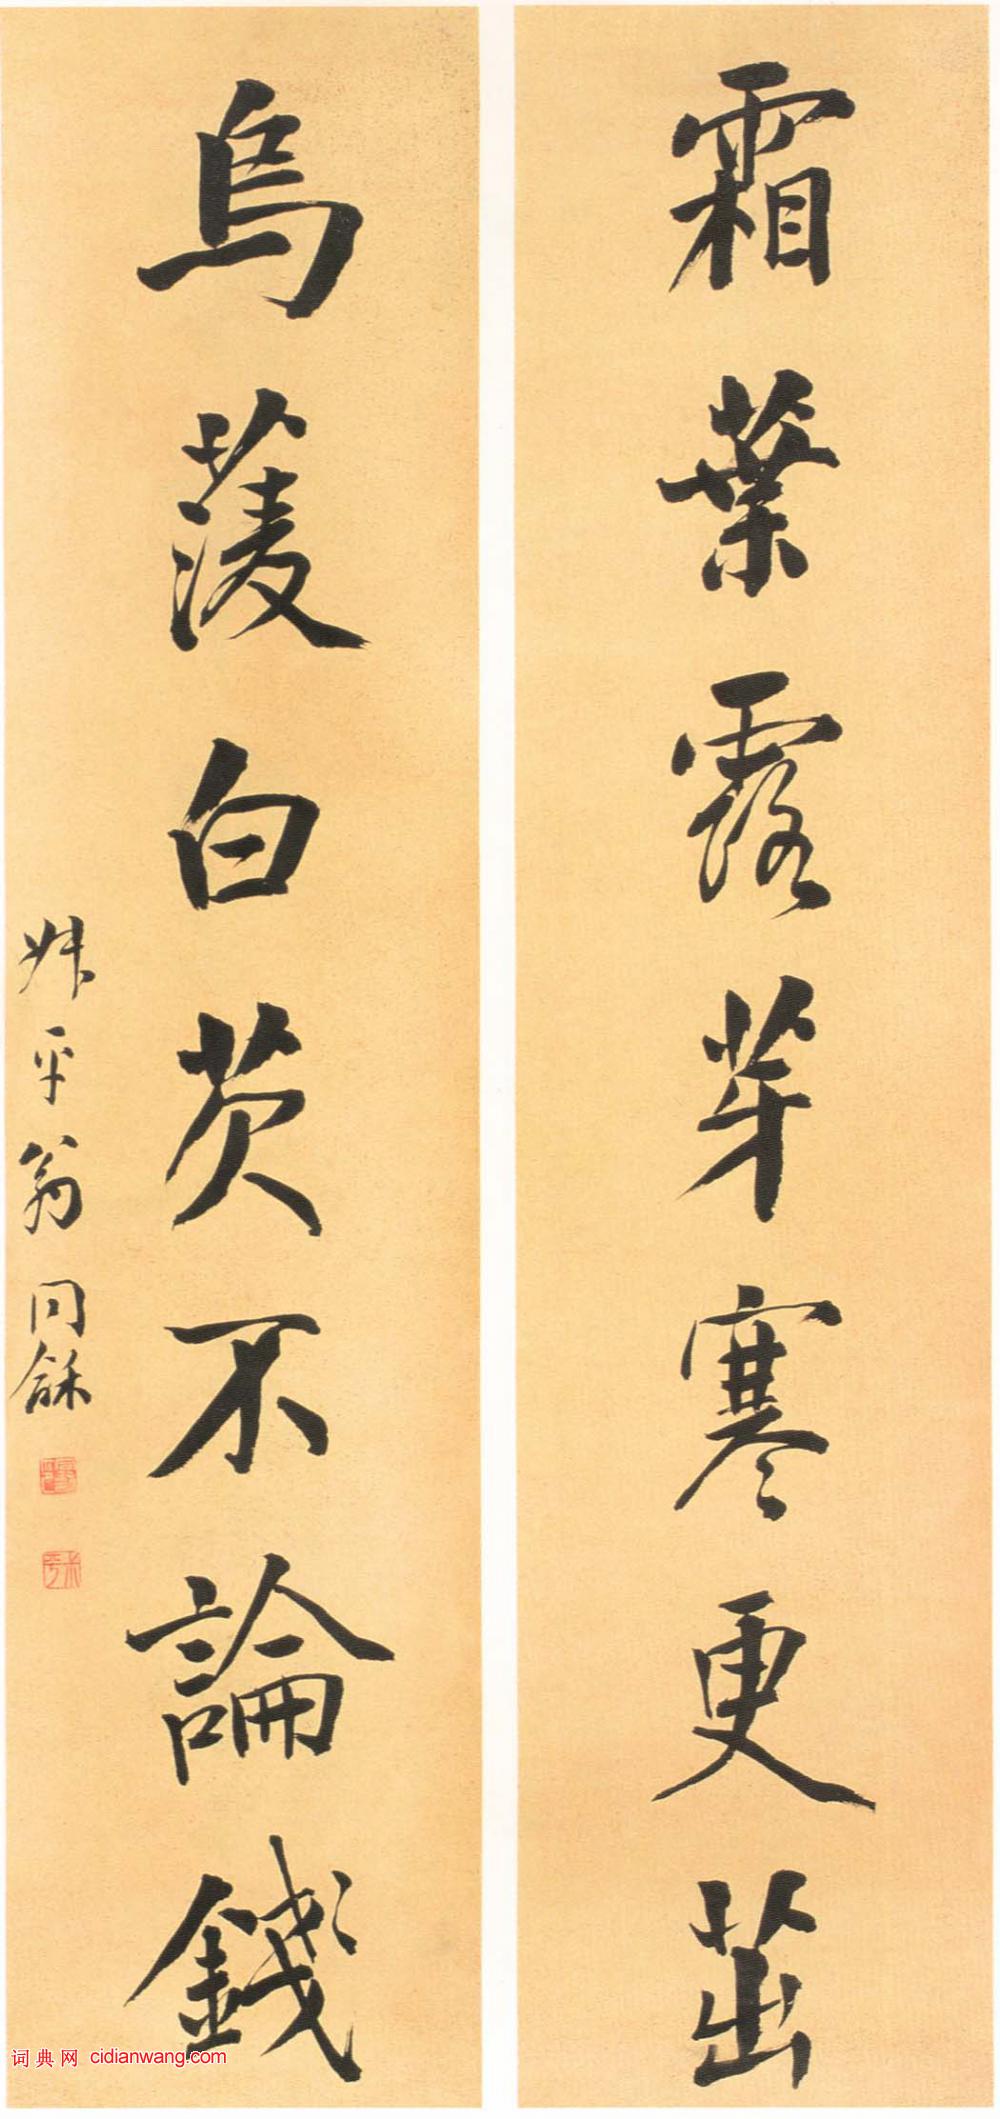 霜葉露芽寒更茁
烏菱白芡不論錢
叔平翁同龢
词典网 cidianwang.com